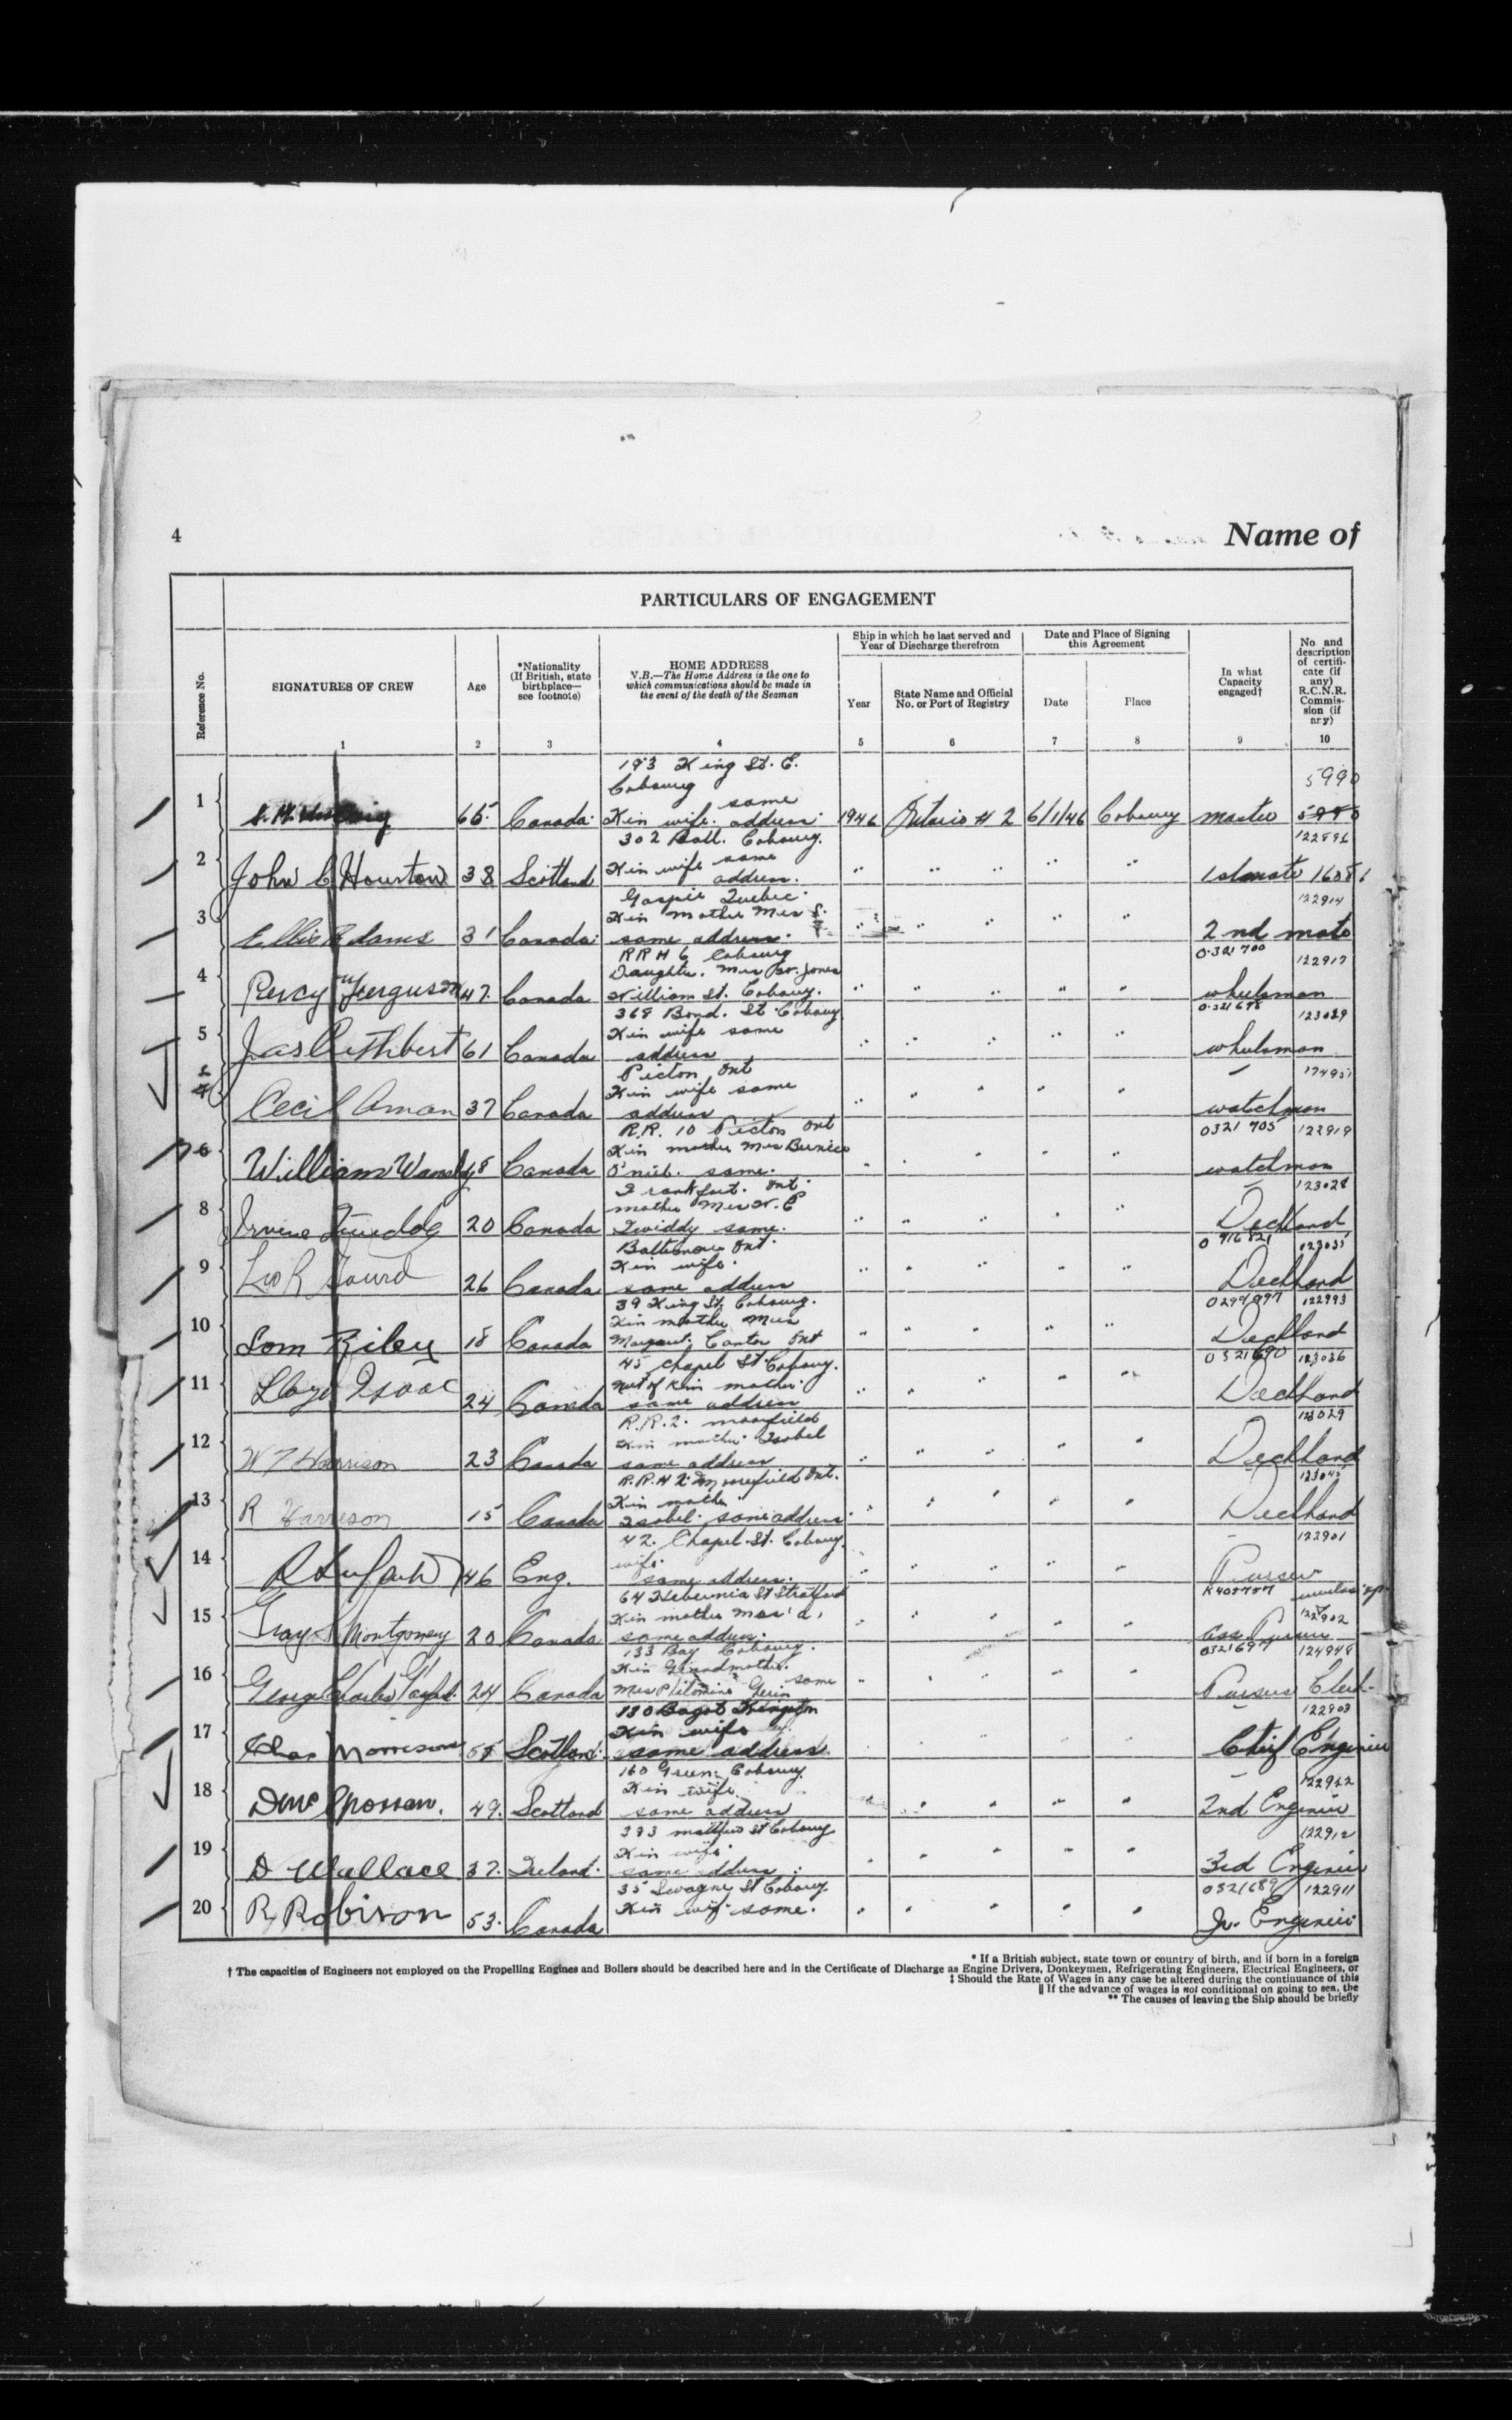 4
Name of
PARTICULARS OF ENGAGEMENT
Reference No.
SIGNATURES OF CREW
Age
*Nationality
(If British, state
birthplace—
see footnote)
HOME ADDRESS
N.B.—The Home Address is the one to
which communications should be made in
the event of the death of the Seaman
Ship in which he last served and
Year of Discharge therefrom
Year
State Name and Official
No. or Port of Registry
Date and Place of Signing
this Agreement
Date
Place
In what
Capacity
engaged†
No and
description
of certifi-
cate (if
any)
R.C.N.R.
Commis-
sion (if
any)
1 2 3 4 5 6 7 8 9 10
193 King St. E.
Cobourg
5990
1 65 Canada Kin wife same address 1946 Ontario # 2 6/1/46 Cobourg master
302 Ball. Cobourg.
122896
2 John C Houston 38 Scotland Kin wife same address. " " " " " 1st mate
Gaspie Quebec
122914
3 Adams 31 Canada Kin mother Mrs
same address. " " " " " 2nd mate
RR # 6 Cobourg
0.321700 122917
4 Percy Ferguson 47 Canada Daughter. Mrs Jones
William St. Cobourg. " " " " " wheelsman
368 Bond. St Cobourg
0.321698 123029
5 Jas Cuthbert 61 Canada Kin wife same
address " " " " " wheelsman
Picton Ont
Cecil Aman 37 Canada Kin wife same
address " " " " " watchman
R.R. 10 Picton Ont
0321 705 122919
6 William 48 Canada Kin mother Mrs Bernice
O'neil. same. " " " " " watchman
Frankfort. Ont.
123028
8 Irvine 20 Canada mother Mrs W. E
Twiddy same. " " " " " Deckhand
Baltimore Ont.
0 916821 123035
9 26 Canada Kin wife.
same address " " " " " Deckhand
39 King St. Cobourg.
122993
10 Tom Riley 18 Canada Kin mother Mrs
Margaret. Ont " " " " " Deckhand
45 Chapel St. Cobourg.
0321690 123036
11 Lloyd Isaac 24 Canada Next of Kin mother
same address " " " " " Deckhand
R.R.2. Moorefield
123029
12 W T Harrison 23 Canada Kin mother Isobel
same address " " " " " Deckhand
R.R. # 2. Moorefield Ont.
13 R Harrison 15 Canada Kin mother
Isobel. same address " " " " " Deckhand
42. Chapel. St. Cobourg.
122901
14 46 Eng. wife.
same address. " " " " " Purser
64 Hibernia St Stratford
15 Montgomery 20 Canada Kin mother
same address. " " " " " Ass Purser
133 Bay Cobourg.
0321697 124948
16 George Charles 24 Canada Kin Grandmother.
Mrs Philomine Gerin same " " " " " Purser Clerk
130 Bagot Kingston
122903
17 Chas Morrison Scotland Kin wife
same address. " " " " " Chief Engineer
160 Green. Cobourg.
122962
18 49. Scotland Kin wife.
same address " " " " " 2nd Engineer
393 Matthew St Cobourg
122912
19 D Wallace 37. Ireland. Kin wife
same address. " " " " " 3rd Engineer
0321689 122911
20 R. Robison 53. Canada 35 St Cobourg
Kin wife same. " " " " " Jr. Engineer
* If a British subject, state town or country of birth, and if born in a foreign
† The capacities of Engineers not employed on the Propelling Engines and Boilers should be described here and in the Certificate of Discharge as Engine Drivers, Donkeymen, Refrigerating Engineers, Electrical Engineers, or
‡ Should the Rate of Wages in any case be altered during the continuance of this
|| If the advance of wages is not conditional on going to sea, the
** The causes of leaving the Ship should be briefly